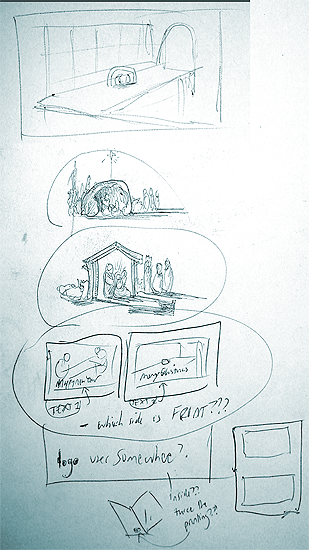 merry christmas
TEXT 1
TEXT 2
- which side is FRONT???
logo used somewhere?
inside??
twice the
printing??